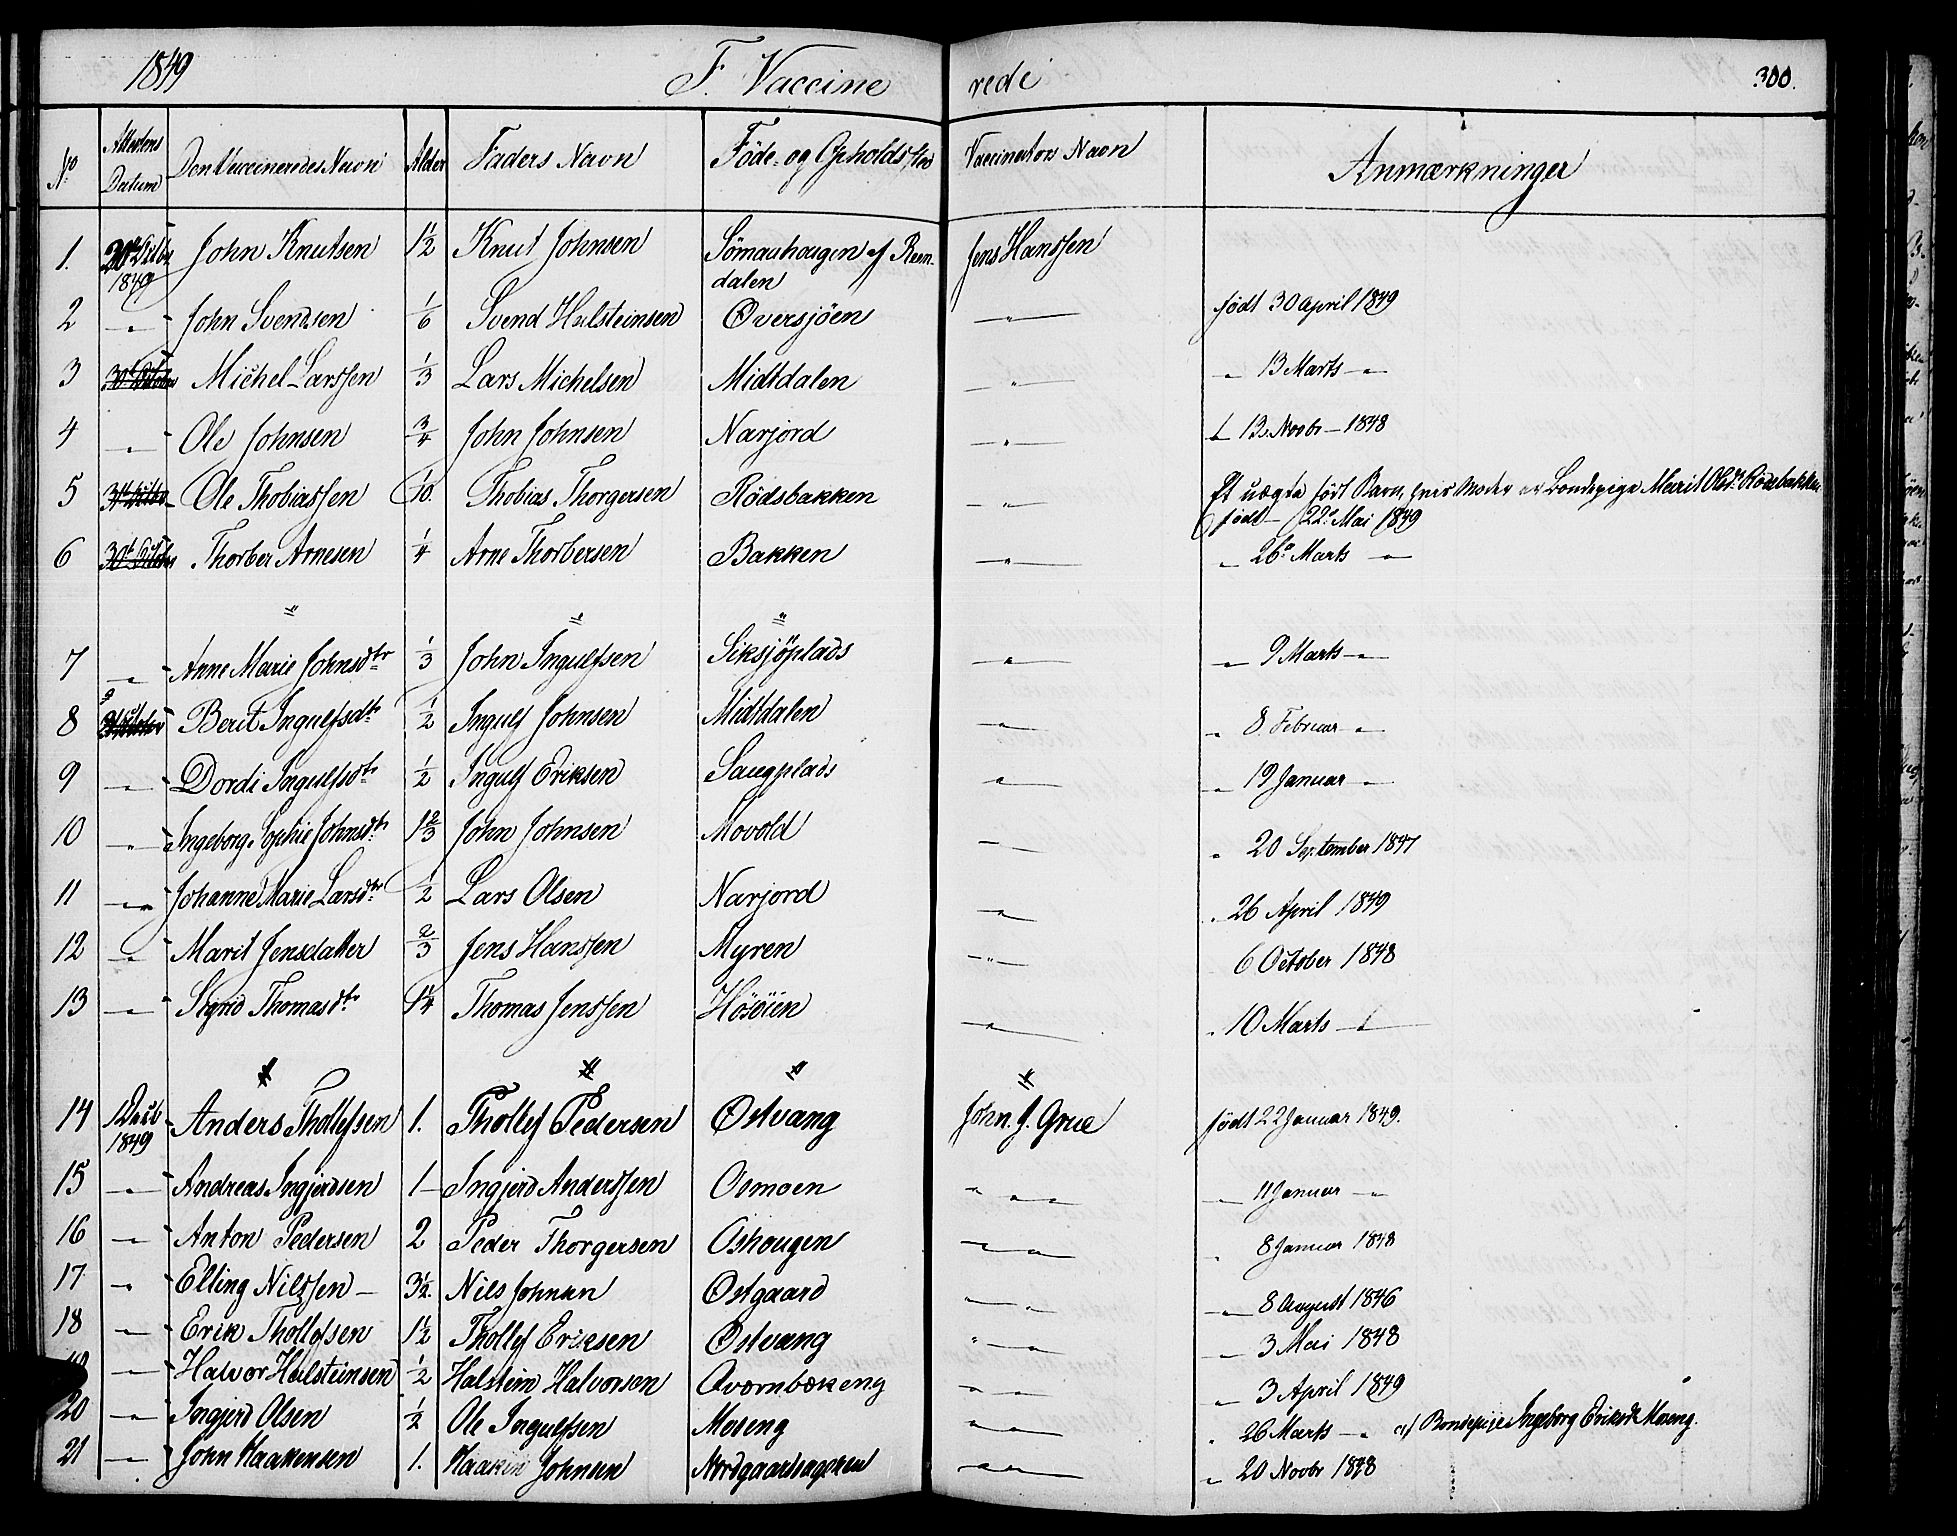 1849 F. Vaccine rede 300.
No Attestens Datum Den Vaccineredes Navn Alder Faders Navn Föde- og Opholdssted Vaccinators Navn Anmærkninger
1. 1849 John Knutsen 1½ Knut Johnsen Sömaahougen af Rem- Jens Hanssen
dalen
2 〃 John Svendsen 1/6 Svend Halsteinsen Oversjöen 〃 födt 30 April 1849
3 Michel Larssen 1/3 Lars Michelsen Midtdalen 〃 〃 13 Marts 〃
4 〃 Ole Johnsen 3/4 John Johnsen Narjord 〃 〃 13 Novbr 1848
5 Ole Thobiassen 1/10. Thobias Thorgersen Rödsbakken 〃 Et uægte födt Barn, hvis Moder er Bondepige Marit Olsdr Rödsbakken
födt 22de Mai 1849
6 Thorber Arnesen 1/4 Arne Thorbersen Bakken 〃 〃 26de Marts 〃
〃 〃 〃
7 〃 Anne Marie Johnsdtr 1/3 John Ingulfsen Siksjöplads 〃 〃 9 Marts 〃
8 Berit Ingulfsdtr 1/2 Ingulf Johnsen Midtdalen 〃 〃 8 Februar 〃
9 〃 Dordi Ingulfsdtr 1/2 Ingulf Eriksen Saugplads 〃 〃 19 Januar 〃
10 〃 Ingeborg Sophie Johnsdtr 1 2/3 John Johnsen Movold 〃 〃 20 September 1847
11 〃 Johanne Marie Larsdtr 1/2 Lars Olsen Narjord 〃 〃 26 April 1849
12 〃 Marit Jensdatter 2/3 Jens Hanssen Myren 〃 6 October 1848
13 〃 Sigrid Thomasdtr 1¼ Thomas Jenssen Hösöien 〃 〃 10 Marts 〃
〃 〃 〃 〃
14 1 Decb 1849 Anders Thollefsen 1. Thollef Pedersen Ostvang John. J. Grue födt 22 Januar 1849.
15 〃 Andreas Ingjerdsen 1 Ingjerd Anderssen Osmoen 〃 〃 〃 11 Januar 〃
16 〃 Anton Pedersen 2 Peder Thorgersen Oshougen 〃 〃 〃 8 Januar 1848
17 〃 Elling Nilssen 3½ Nils Johnsen Ostgaard 〃 〃 〃 8 August 1846
18 〃 Erik Thollefsen 1½ Thollef Eriksen Ostvang 〃 〃 〃 3 Mai 1848
19 〃 Halvor Halsteinsen 1/2 Halstein Halvorsen Qvernbækeng 〃 〃 〃 3 April 1849
20 〃 Ingjerd Olsen 1/2 Ole Ingulfsen Moseng 〃 〃 〃 26 Marts 〃 af Bondepige Ingeborg Eriksdr Moseng.
21 〃 John Haakensen 1. Haakin Johnsen 〃 〃 〃 20 Novbr 1848